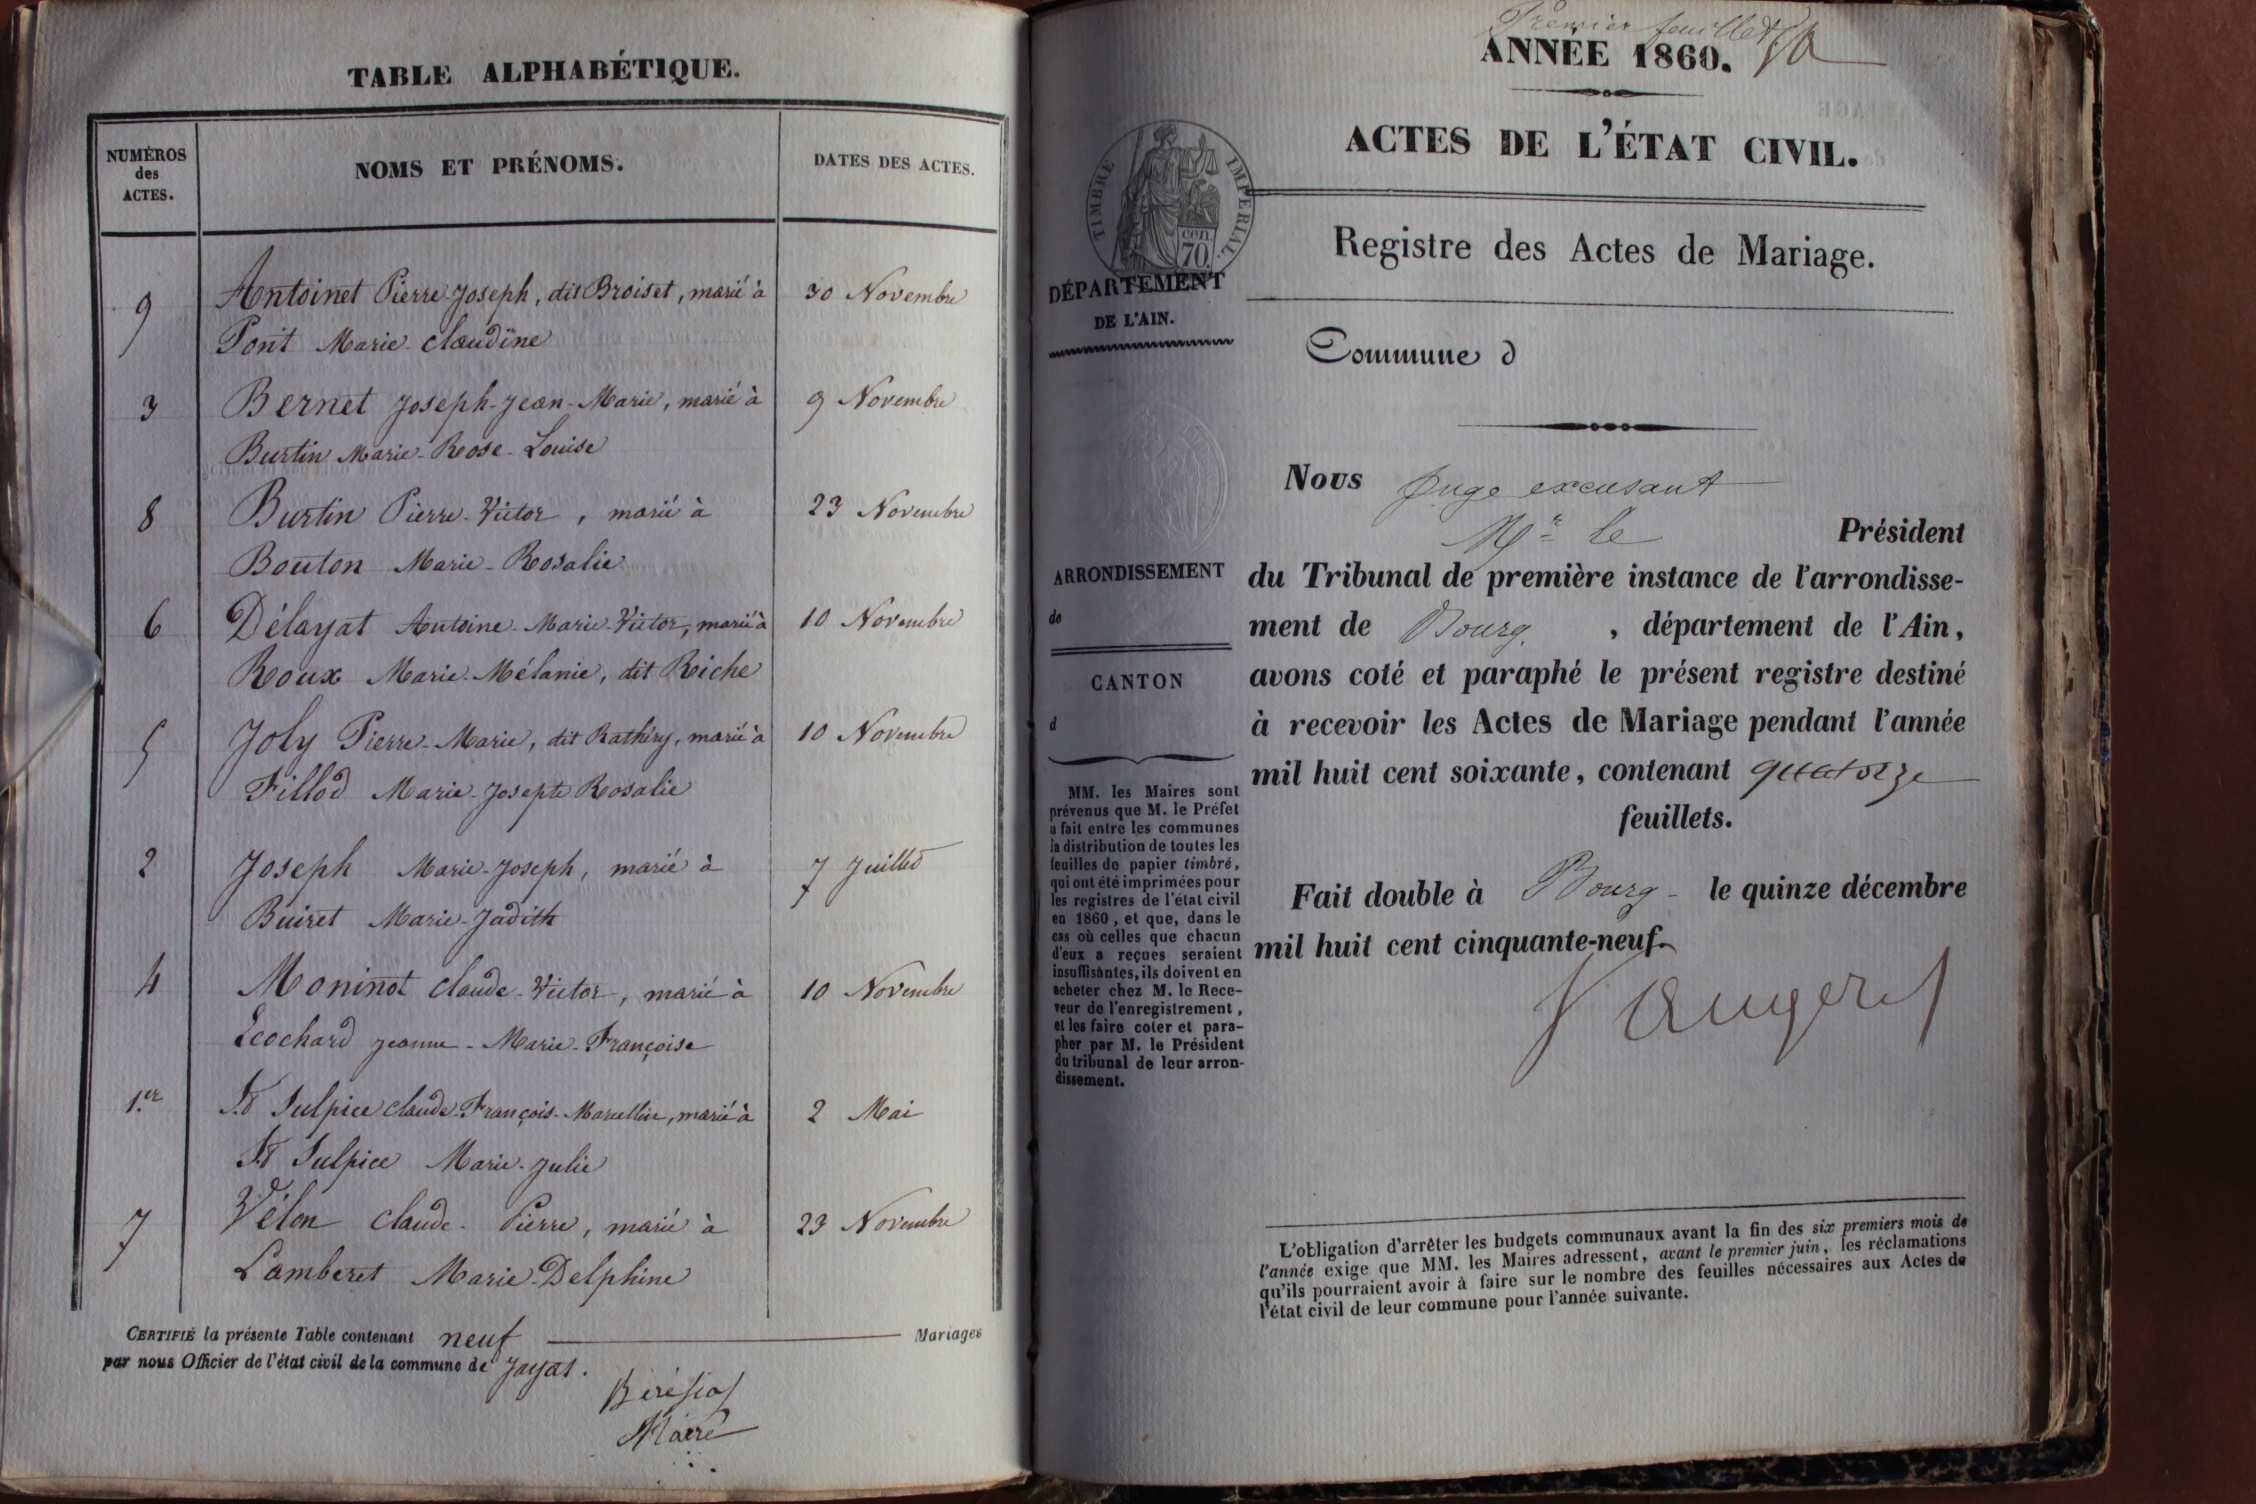 TABLE ALPHABÉTIQUE.
NUMÉROS
des
ACTES.
NOMS ET PRÉNOMS.
DATES DES ACTES.
9 Antoinet Pierre Joseph, dit Broiset, marié à 30 Novembre
Pont Marie Claudine
3 Bernet Joseph-Jean-Marie, marié à 9 Novembre
Burtin Marie-Rose-Louise
8 Burtin Pierre-Victor, marié à 23 Novembre
Bouton Marie-Rosalie
6 Délayat Antoine-Marie-Victor, marié à 10 Novembre
Roux Marie-Mélanie, dit Riche
5 Joly Pierre-Marie, dit Rathéry, marié à 10 Novembre
Fillod Marie-Josepte Rosalie
2 Joseph Marie-Joseph, marié à 7 Juillet
Buiret Marie-Judith
4 Moninot Claude-Victor, marié à 10 Novembre
Ecochard Jeanne-Marie-Françoise
1.er St Sulpice Claude-François-Marcellin, marié à 2 Mai
St Sulpice Marie-Julie
7 Vélon Claude-Pierre, marié à 23 Novembre
Lamberet Marie-Delphine
CERTIFIÉ la présente Table contenant neuf Mariages
par nous Officier de l'état civil de la commune de Jayat.
Maire
Premier feuillet
ANNÉE 1860.
ACTES DE L'ÉTAT CIVIL.
TIMBRE IMPÉRIAL.
cen.
70.
Registre des Actes de Mariage.
DÉPARTEMENT
DE L'AIN.
Commune d
Nous Juge excusant
Mr le Président
ARRONDISSEMENT
de
CANTON
d
du Tribunal de première instance de l'arrondisse-
ment de Bourg, département de l'Ain,
avons coté et paraphé le présent registre destiné
à recevoir les Actes de Mariage pendant l'année
mil huit cent soixante, contenant quatorze
feuillets.
Fait double à Bourg le quinze décembre
mil huit cent cinquante-neuf.
MM. les Maires sont
prévenus que M. le Préfet
a fait entre les communes
la distribution de toutes les
feuilles de papier timbré,
qui ont été imprimées pour
les registres de l'état civil
en 1860, et que, dans le
cas où celles que chacun
d'eux a reçues seraient
insuffisantes, ils doivent en
acheter chez M. le Rece-
veur de l'enregistrement,
et les faire coter et para-
pher par M. le Président
du tribunal de leur arron-
dissement.
L'obligation d'arrêter les budgets communaux avant la fin des six premiers mois de
l'année exige que MM. les Maires adressent, avant le premier juin, les réclamations
qu'ils pourraient avoir à faire sur le nombre des feuilles nécessaires aux Actes de
l'état civil de leur commune pour l'année suivante.